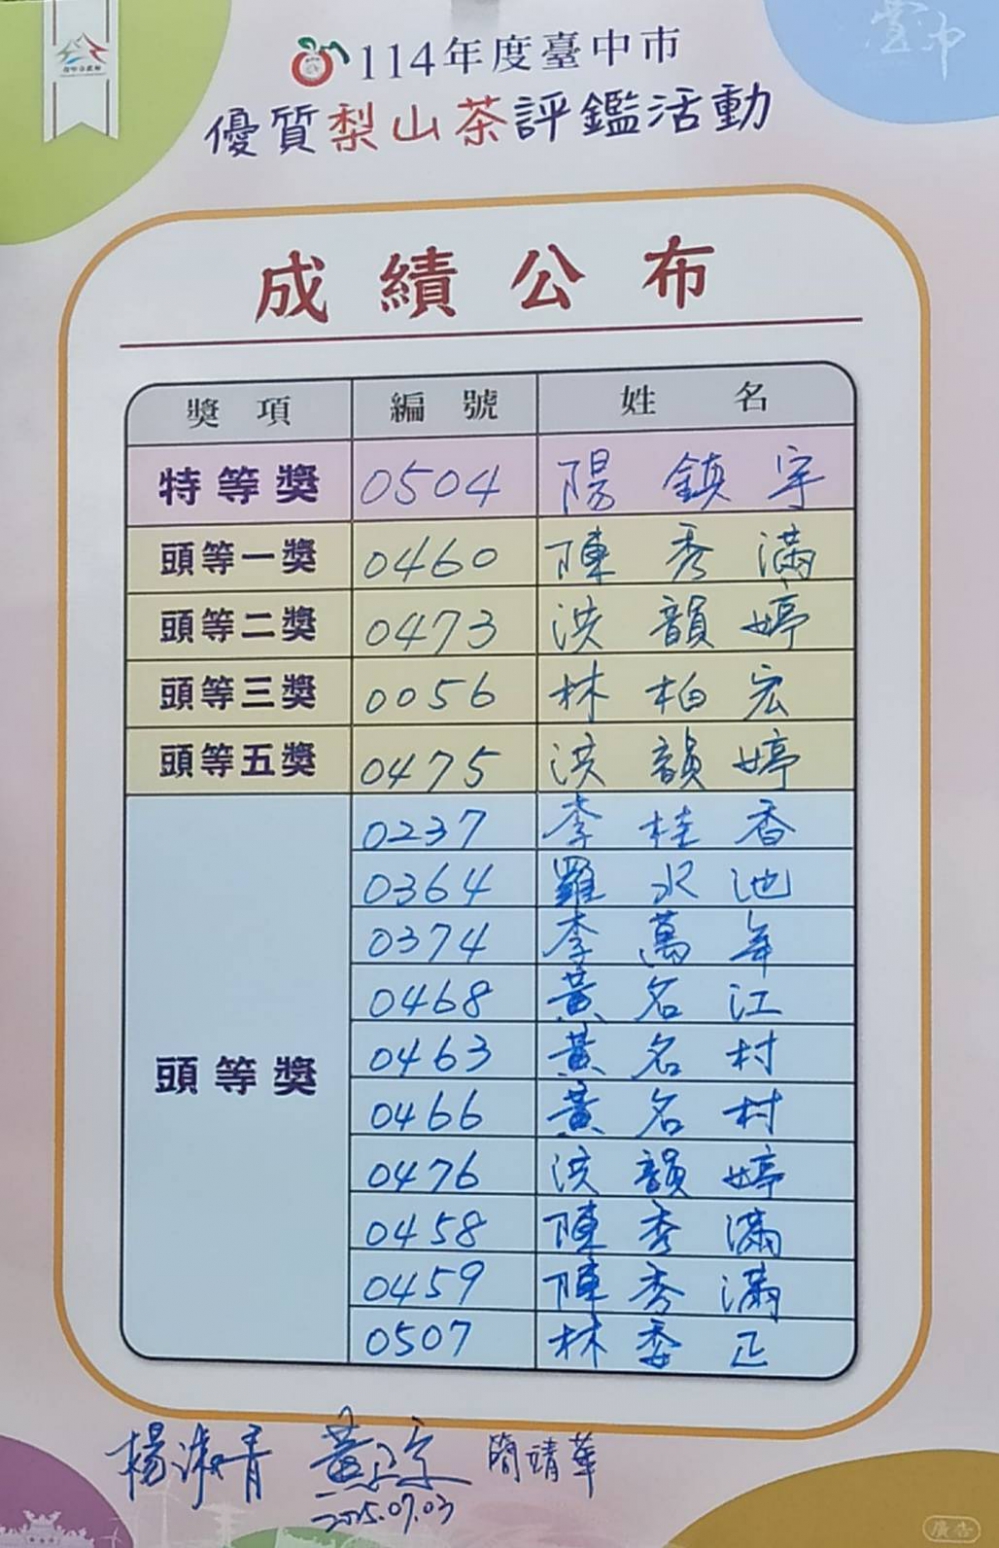 114年度臺中市
優質梨山茶評鑑活動
成績公布
獎項 編號 姓名
特等獎 0504 陽鎮宇
頭等一獎 0460 陳秀滿
頭等二獎 0473 洪韻婷
頭等三獎 0056 林柏宏
頭等五獎 0475 洪韻婷
0237 李桂香
0364 羅水池
0374 李萬年
0468 黃名江
0463 黃名村
頭等獎
0466 黃名村
0476 洪韻婷
0458 陳秀滿
0459 陳秀滿
0507 林委正
楊淑青 黃正宗 簡靖華
2025.07.03
廣告